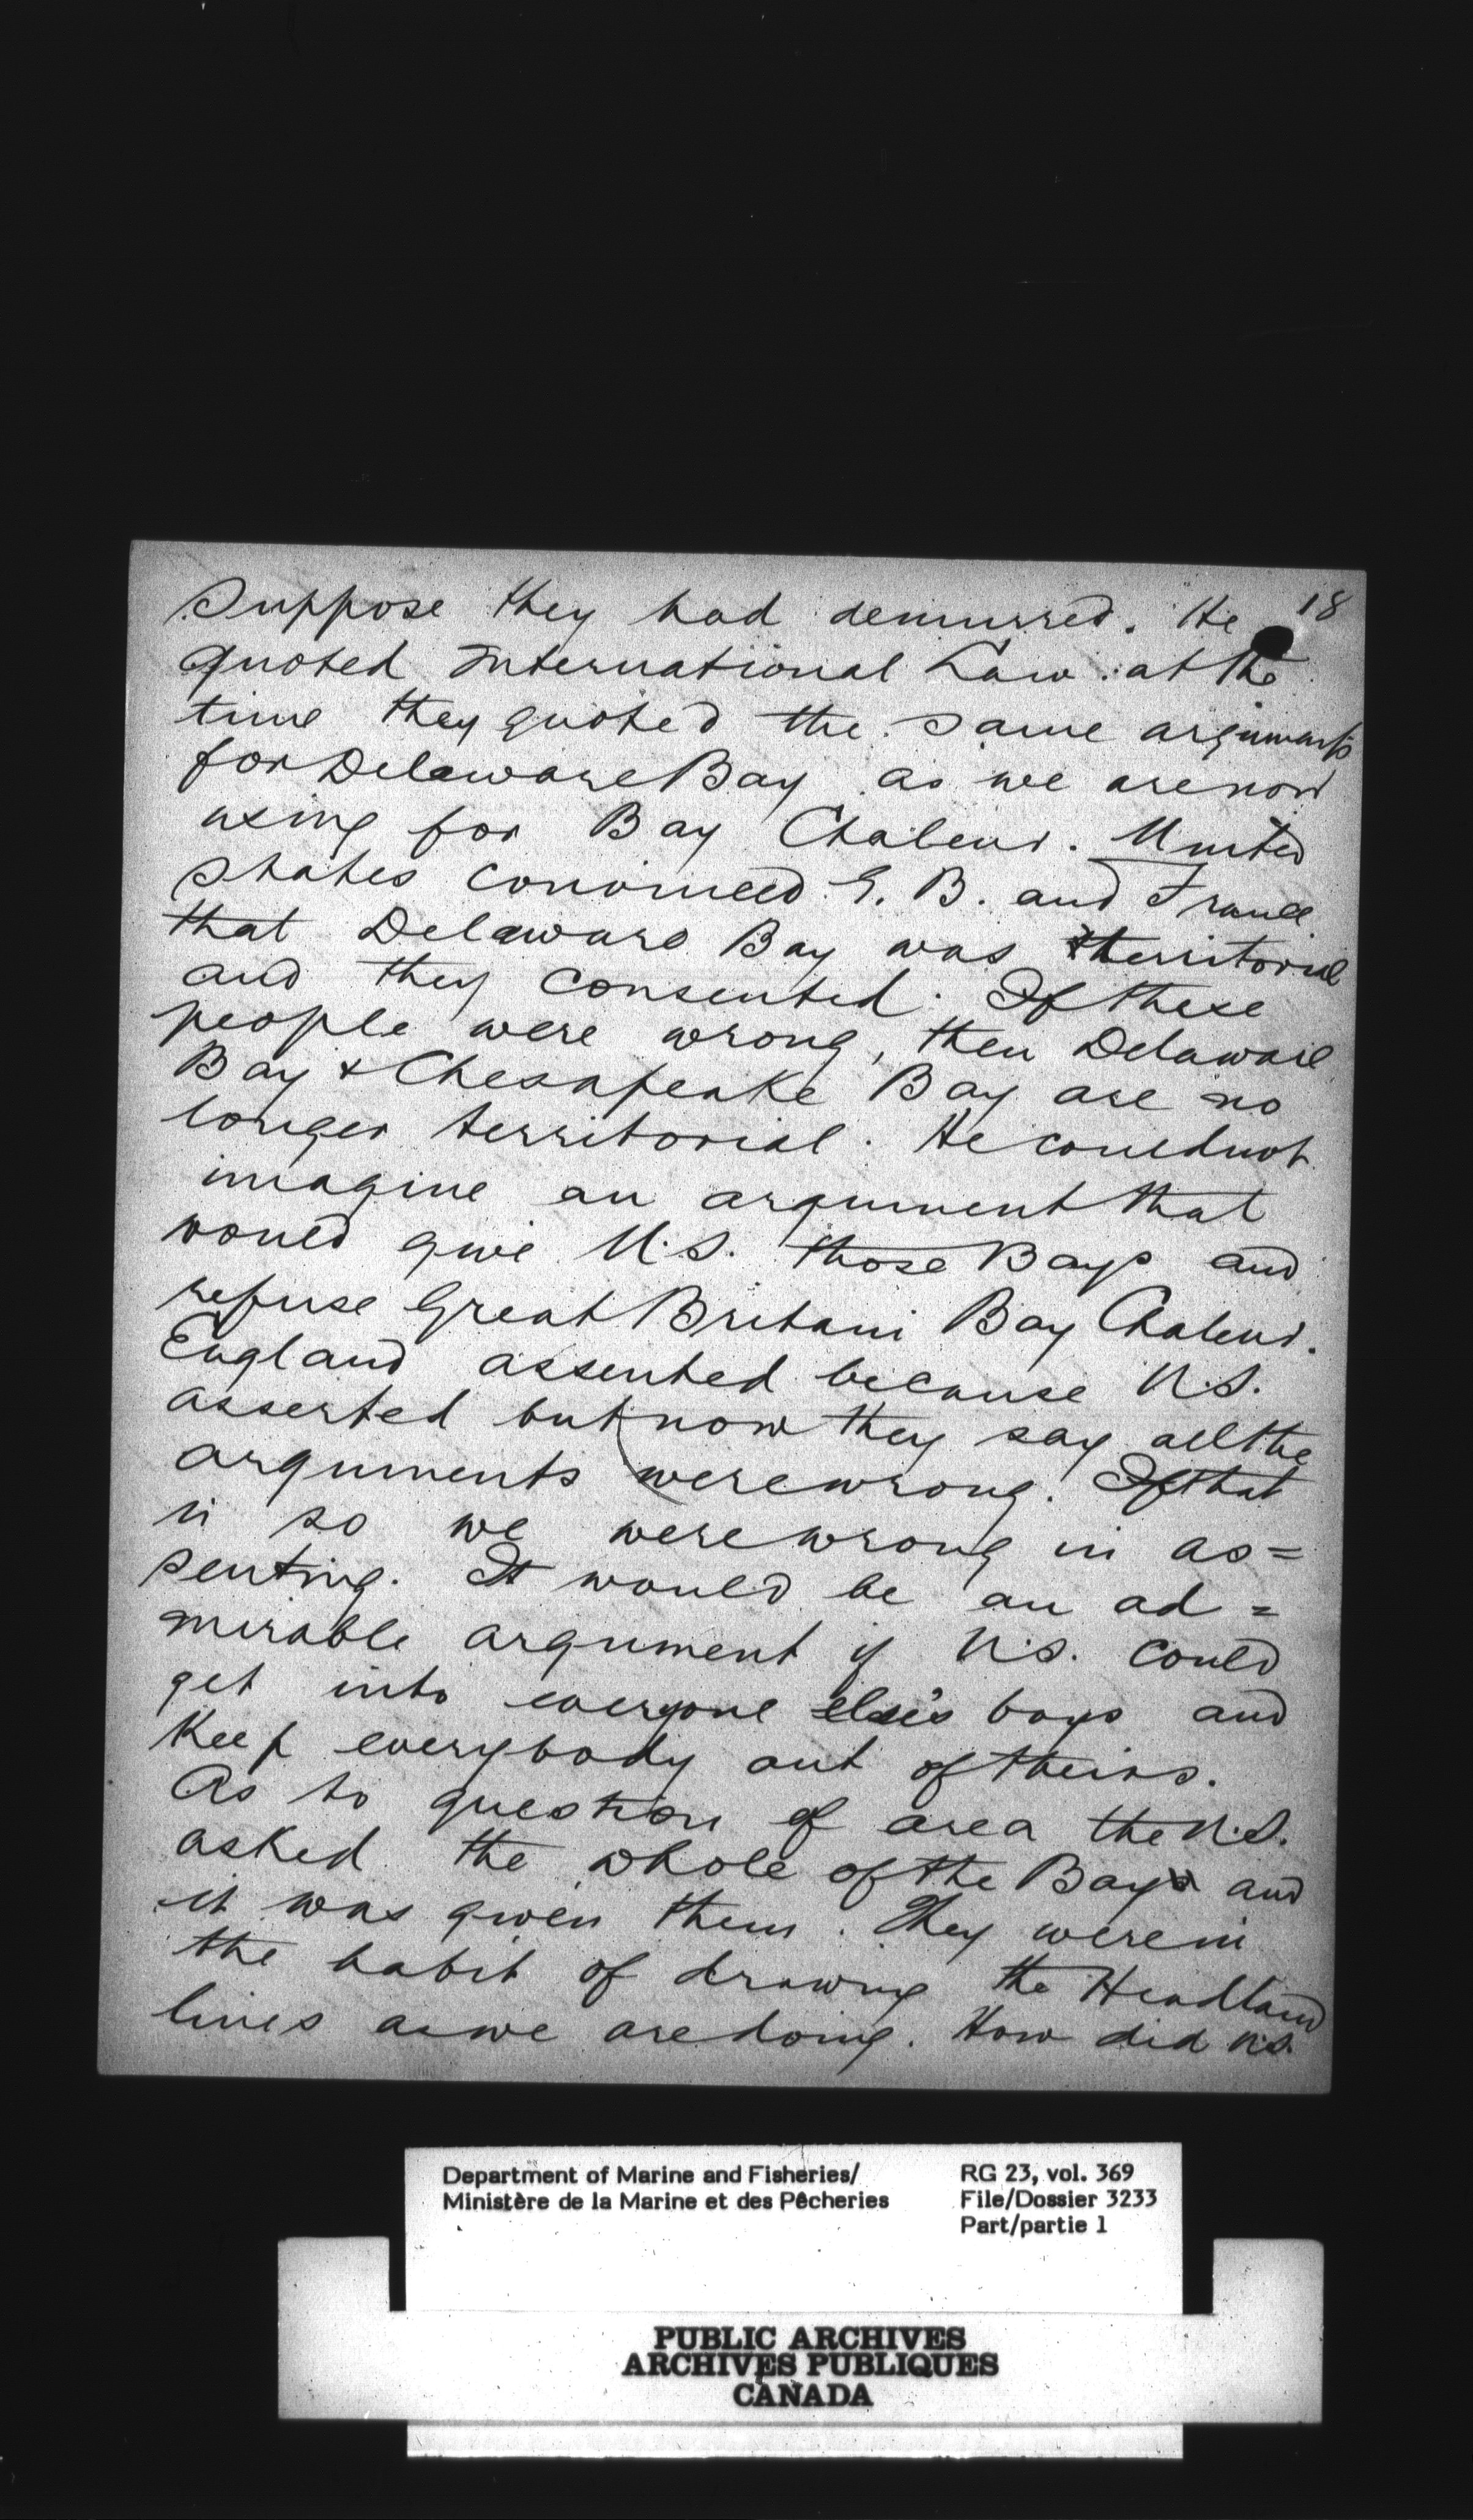 18
Suppose they had demurred. He
quoted International Law at the
time they quoted the same arguments
for Delaware Bay as we are now
using for Bay Chaleur. United
States convinced G. B. and France
that Delaware Bay was territorial
and they consented. If these
people were wrong, then Delaware
Bay & Chesapeake Bay are no
longer territorial. He could not
imagine an argument that
would give U.S. those Bays and
refuse Great Britain Bay Chaleur.
England assented because U.S.
asserted but now they say all the
arguments were wrong. If that
is so we were wrong in as=
senting. It would be an ad=
mirable argument if U.S. could
get into everyone else's bays and
keep everybody out of theirs.
As to question of area the U.S.
asked the whole of the Bay and
it was given them. They were in
the habit of drawing the Headland
lines as we are doing. How did U.S.
Department of Marine and Fisheries/
Ministère de la Marine et des Pêcheries
RG 23, vol. 369
File/Dossier 3233
Part/partie 1
PUBLIC ARCHIVES
ARCHIVES PUBLIQUES
CANADA